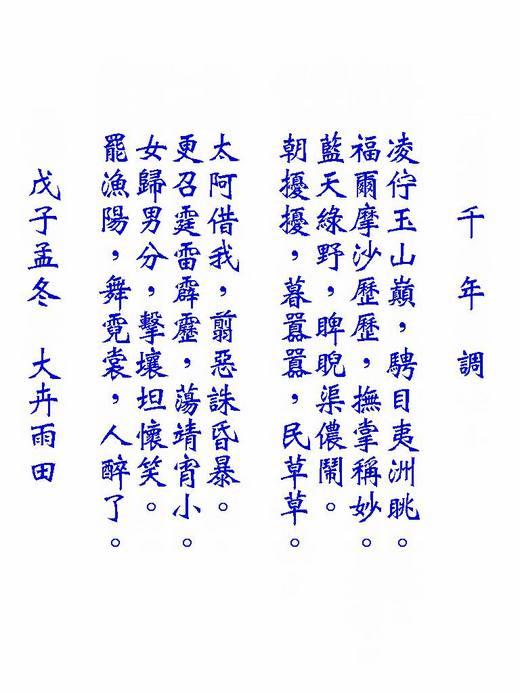 千年調
凌佇玉山巔，騁目夷洲眺。
福爾摩沙歷歷，撫掌稱妙。
藍天綠野，睥睨渠儂鬧。
朝擾擾，暮囂囂，民草草。
太阿借我，翦惡誅昏暴。
更召霆雷霹靂，蕩靖宵小。
女歸男分，擊壤坦懷笑。
罷漁陽，舞霓裳，人醉了。
戊子孟冬 大卉雨田